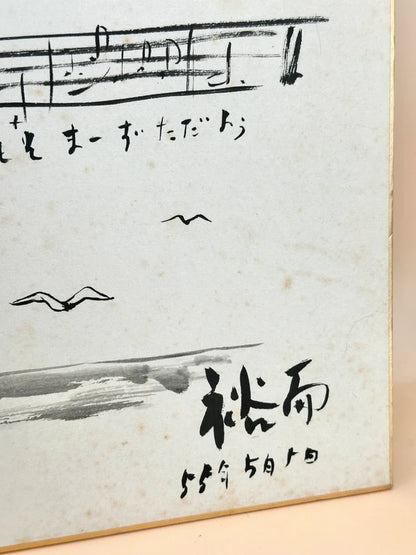 も そ まーず ただよう
裕而
55年5月1日